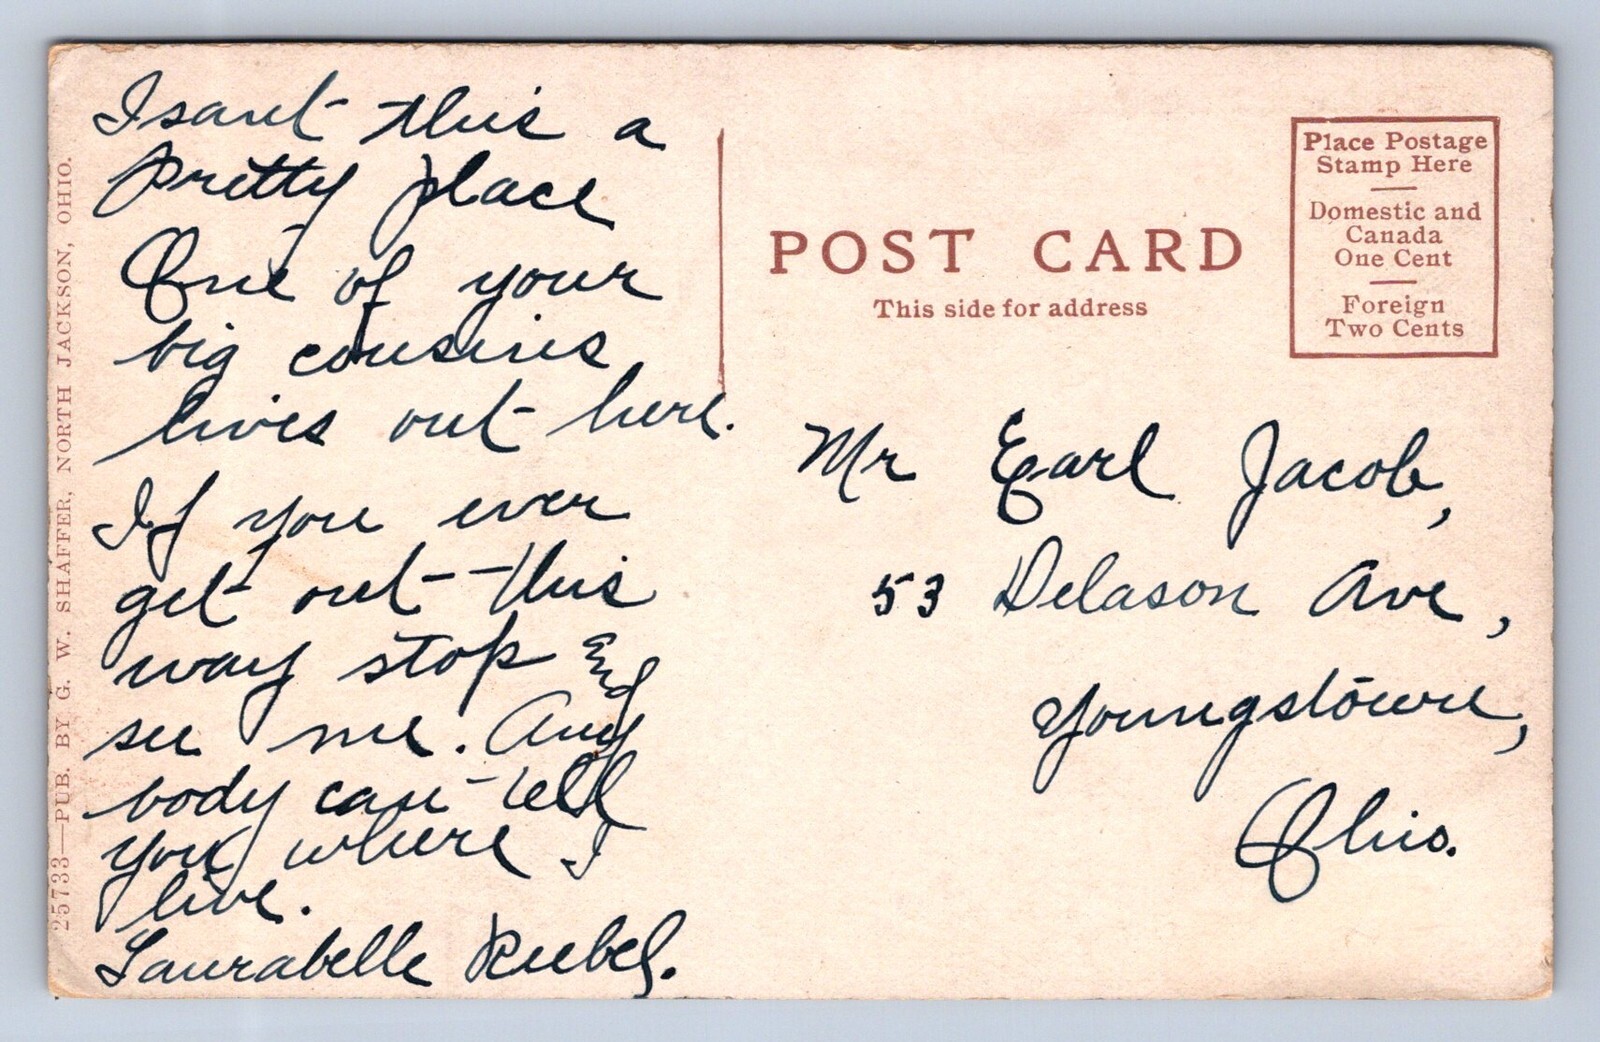 Isant this a
pretty place
One of your
big cousins
lives out here.
If you ever
get out this
way stop and
see me. Any
body can tell
you where I
live.
Laurabelle Ruebel.
25733—PUB. BY G. W. SHAFFER, NORTH JACKSON, OHIO.
POST CARD
This side for address
Place Postage
Stamp Here
Domestic and
Canada
One Cent
Foreign
Two Cents
Mr Earl Jacob,
53 Delason Ave,
Youngstown,
Ohio.